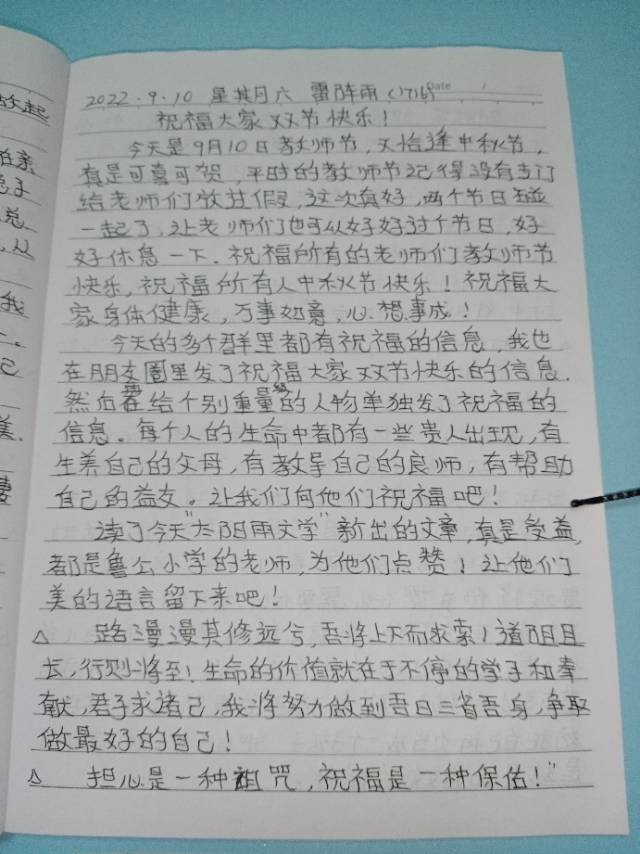 2022.9.10 星期六 雷阵雨 (1716)
祝福大家双节快乐!
今天是9月10日教师节,又恰逢中秋节,
真是可喜可贺,平时的教师节记得没有专门
给老师们放过假,这次真好,两个节日碰
一起了,让老师们也可以好好过个节日,好
好休息一下.祝福所有的老师们教师节
快乐,祝福所有人中秋节快乐!祝福大
家身体健康,万事如意,心想事成!
今天的多个群里都有祝福的信息,我也
在朋友圈里发了祝福大家双节快乐的信息.
然后在给个别重量级的人物单独发了祝福的
信息。每个人的生命中都有一些贵人出现,有
生养自己的父母,有教导自己的良师,有帮助
自己的益友。让我们向他们祝福吧!
读了今天"太阳雨文学"新出的文章,真是受益,
都是鲁公小学的老师,为他们点赞!让他们
美的语言留下来吧!
△ 路漫漫其修远兮,吾将上下而求索!道阻且
长,行则将至!生命的价值就在于不停的学习和奉
献,君子求诸己,我将努力做到吾日三省吾身,争取
做最好的自己!
△ 担心是一种诅咒,祝福是一种保佑!"